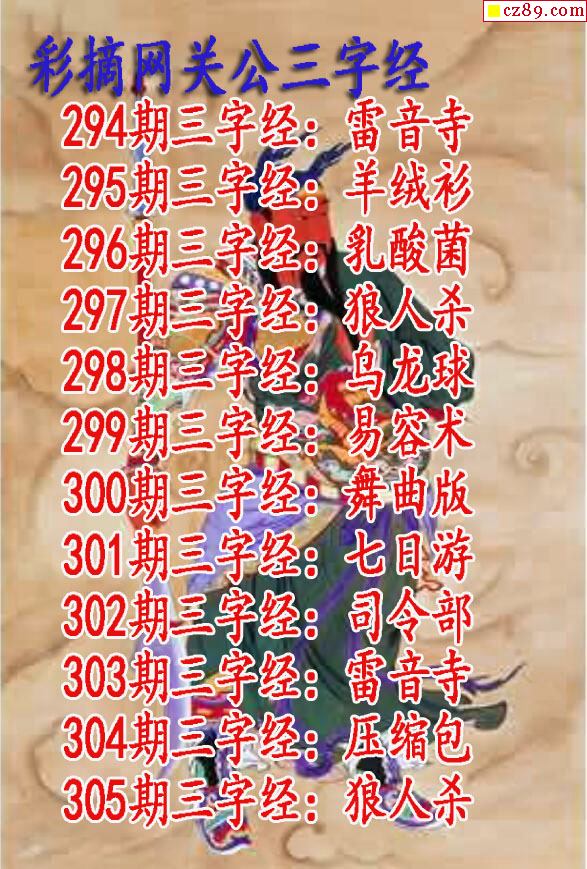 cz89.com
彩摘网关公三字经
294期三字经：雷音寺
295期三字经：羊绒衫
296期三字经：乳酸菌
297期三字经：狼人杀
298期三字经：乌龙球
299期三字经：易容术
300期三字经：舞曲版
301期三字经：七日游
302期三字经：司令部
303期三字经：雷音寺
304期三字经：压缩包
305期三字经：狼人杀